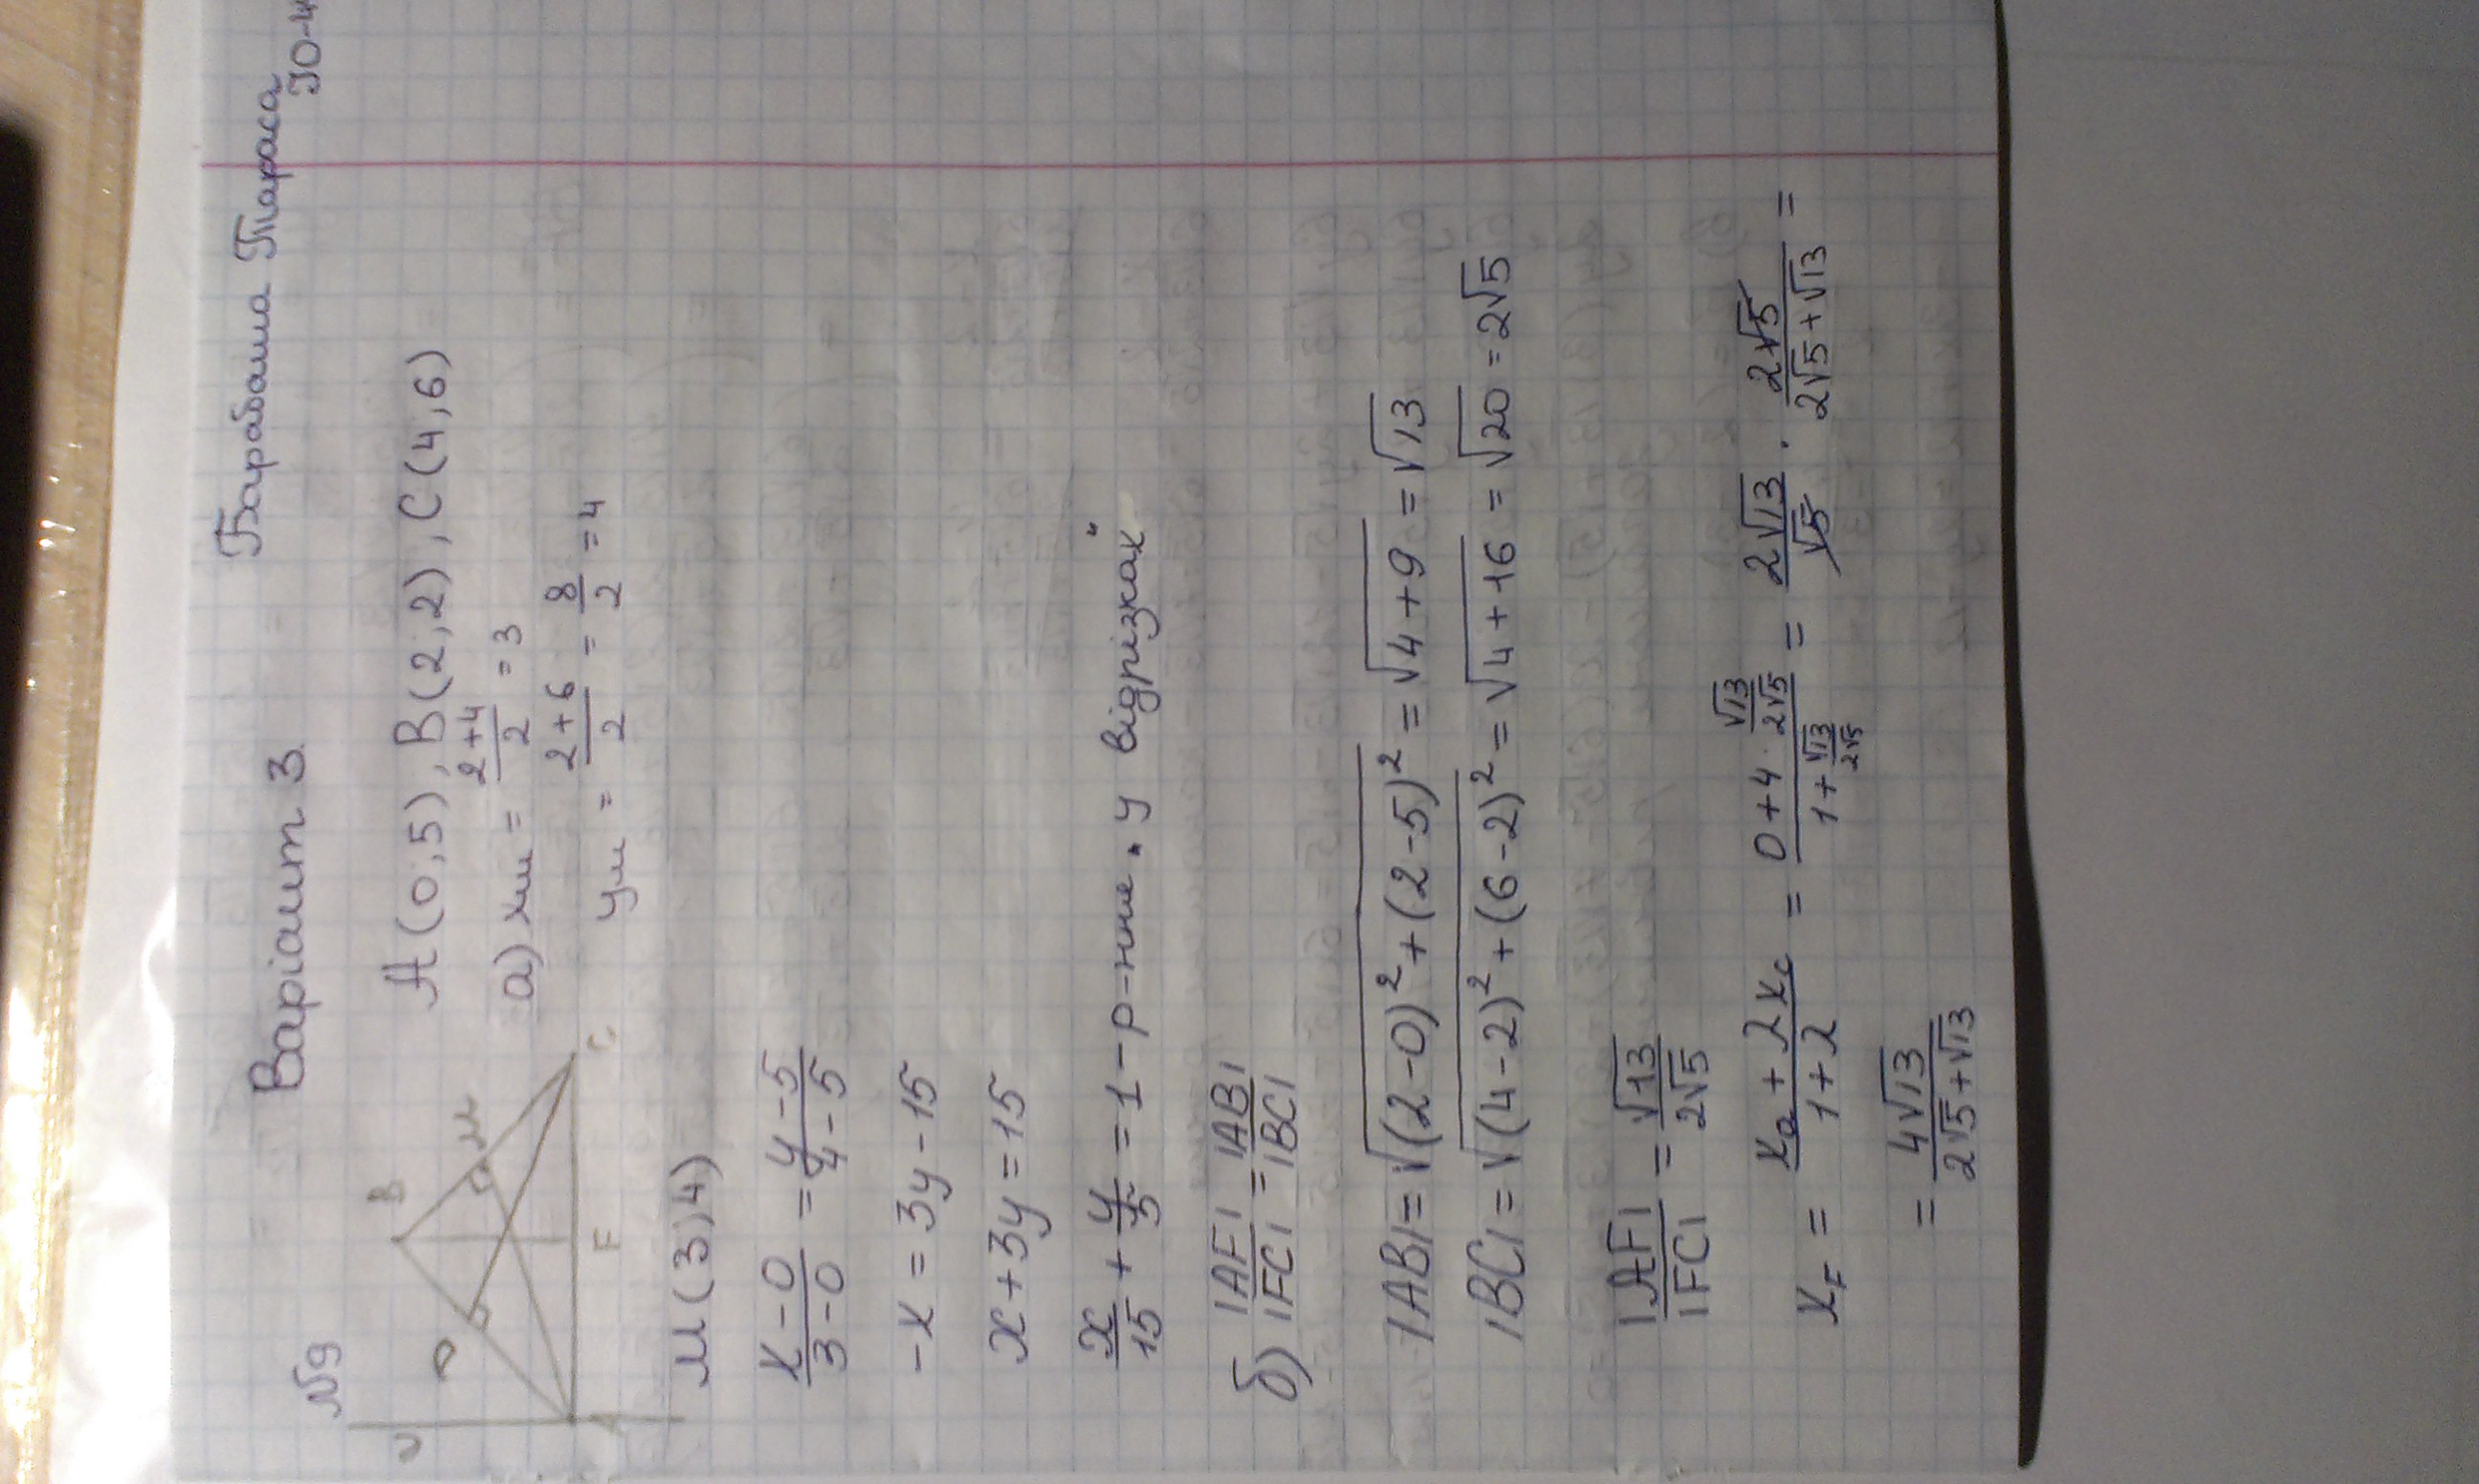 Барабаша Тараса
ІО-4
Варіант 3
№9
A(0,5), B(2,2), C(4,6)
а) xм = (2+4)/2 = 3
yм = (2+6)/2 = 8/2 = 4
B
D
M
C
F
A
M(3,4)
(x-0)/(3-0) = (y-5)/(4-5)
-x = 3y-15
x+3y=15
x/15 + y/5 = 1 - р-ння "у відрізках"
б) |AF|/|FC| = |AB|/|BC|
|AB| = √((2-0)²+(2-5)²) = √(4+9) = √13
|BC| = √((4-2)²+(6-2)²) = √(4+16) = √20 = 2√5
|AF|/|FC| = √13/(2√5)
x_F = (x_a+λx_c)/(1+λ) = (0+4·√13/(2√5))/(1+√13/(2√5)) = 2√13/√5 · 2√5/(2√5+√13) =
= 4√13/(2√5+√13)